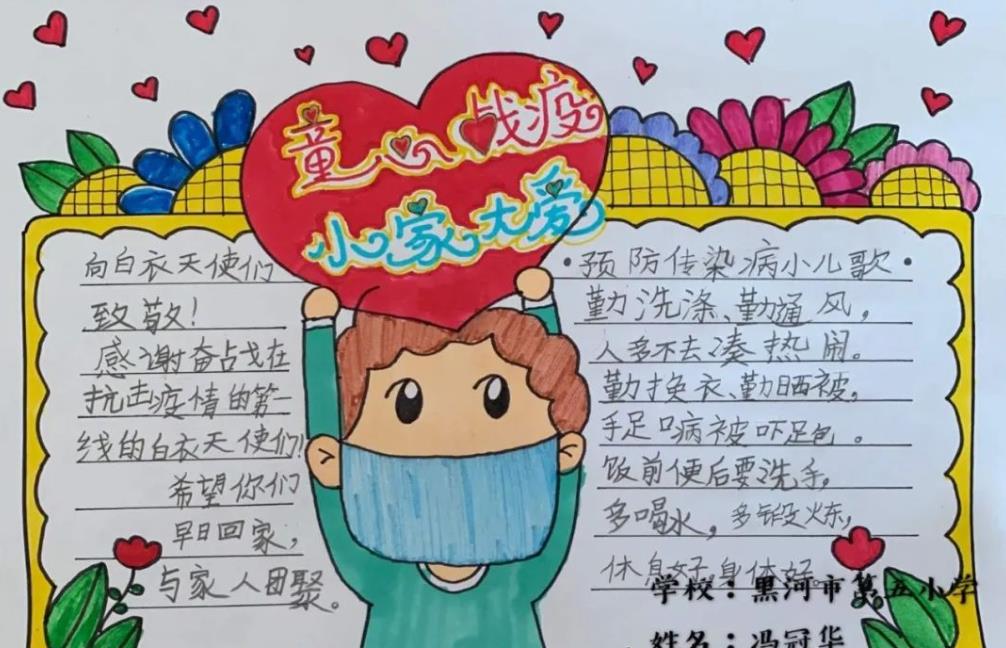 童心战疫
小家大爱
向白衣天使们
致敬!
感谢奋战在
抗击疫情的第一
线的白衣天使们!
希望你们
早日回家,
与家人团聚。
·预防传染病小儿歌·
勤洗涤、勤通风,
人多不去凑热闹。
勤换衣、勤晒被,
手足口病被吓跑。
饭前便后要洗手,
多喝水,多锻炼,
休息好,身体好。
学校:黑河市第五小学
姓名:冯冠华